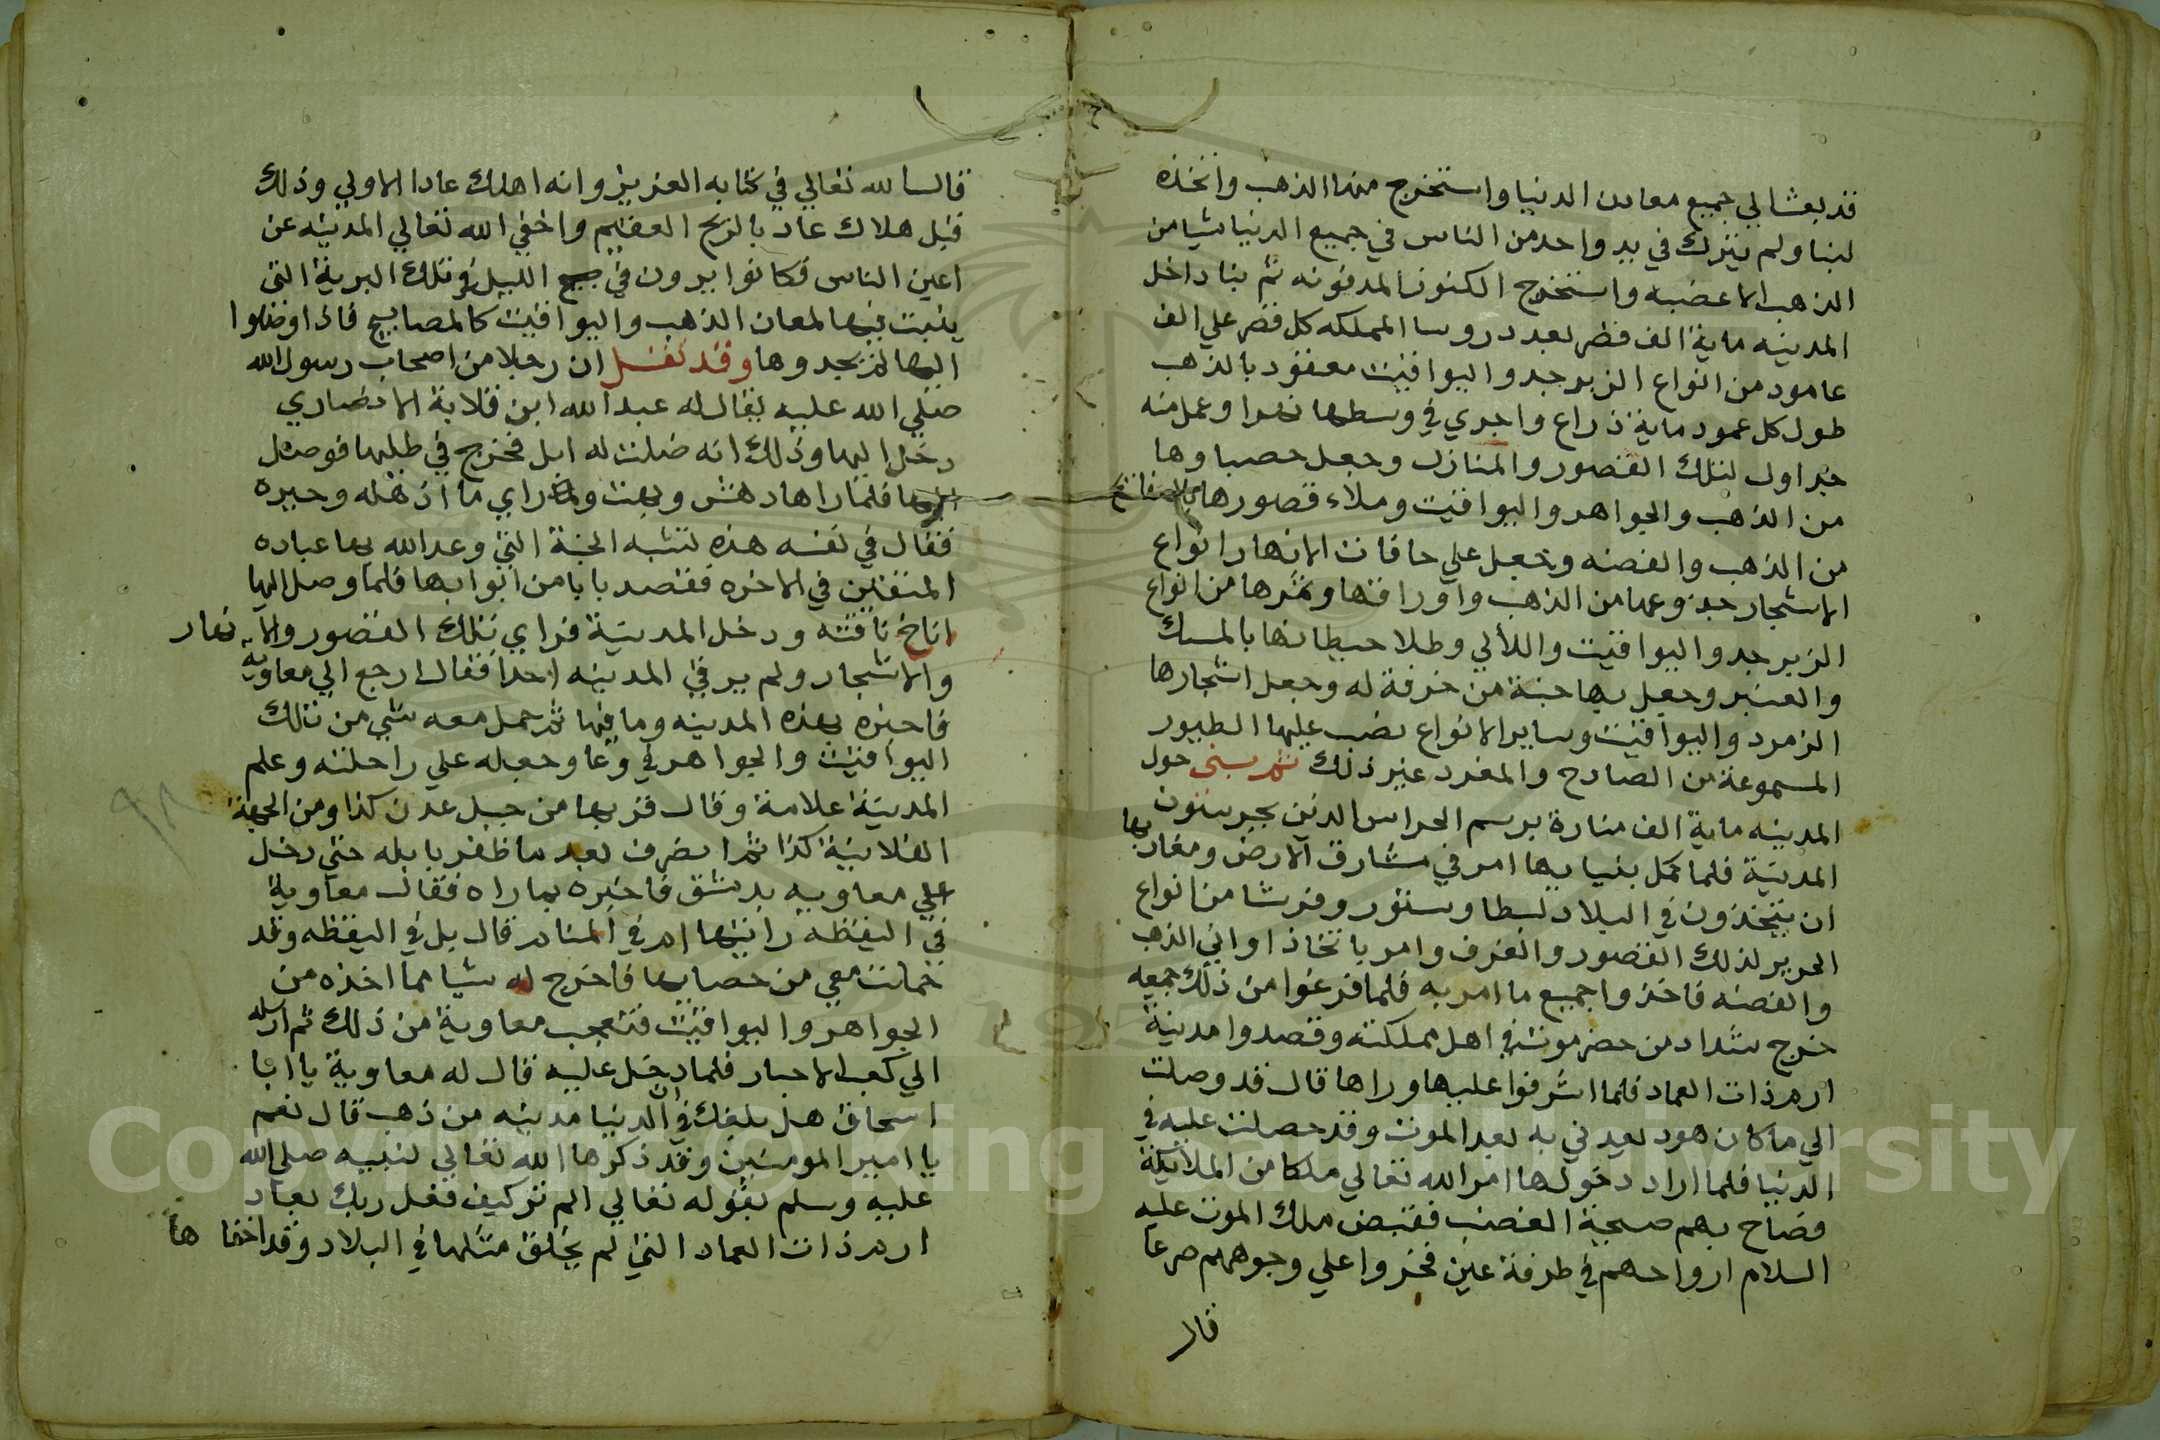 قد بعث الي جميع معادن الدنيا واستخرج منها الذهب واتخذه
لبنا ولم يترك في يد واحد من الناس في جميع الدنيا شيا من
الذهب الا غصبه واستخرج الكنوز المدفونه ثم بنا داخل
المدينه ماية الف قصر بعدد روسا المملكه كل قصر علي الف
عامود من انواع الزبرجد واليواقيت معقود بالذهب
طول كل عمود ماية ذراع واجري في وسطها نهرا وعمل منه
جداول لتلك القصور والمنازل وجعل حصباوها
من الذهب والجواهر واليواقيت وملاء قصورها بالصفائح
من الذهب والفضه وجعل علي حافات الانهار انواع
الاشجار جذوعها من الذهب واوراقها وثمرها من انواع
الزبرجد واليواقيت واللألي وطلا حيطانها بالمسك
والعنبر وجعل بها جنة من خرفة له وجعل اشجارها
الزمرد واليواقيت وساير الانواع نصب عليها الطيور
المسموعة من الصادح والمغرد غير ذلك ثم بني حول
المدينه ماية الف منارة برسم الحراس الذين يحرسون
المدينة فلما كمل بنيانها امر في مشارق الارض ومغاربها
ان يتخذون في البلاد بسطا وستور وفرشا من انواع
الحرير لذلك القصور والغرف وامر باتخاذ اواني الذهب
والفضه فاخذوا جميع ما امر به فلما فرغوا من ذلك جميعه
خرج شداد من حضرموت في اهل مملكته وقصدوا مدينة
ارم ذات العماد فلما اشرفوا عليها وراها قال قد وصلت
الي ما كان هود يعدني به بعد الموت وقد حصلت عليه في
الدنيا فلما اراد دخولها امر الله تعالي ملكا من الملايكة
فصاح بهم صيحة الغضب فقبض ملك الموت عليه
السلام ارواحهم في طرفة عين فخروا علي وجوههم صرعا
قال
قال الله تعالي في كتابه العزيز وانه اهلك عادا الاولي وذلك
قبل هلاك عاد بالريح العقيم واخفي الله تعالي المدينه عن
اعين الناس فكانوا يرون في الليل في تلك البرية التي
ينبت فيها لمعان الذهب واليواقيت كالمصابيح فاذا وصلوا
اليها لم يجدوها وقد نقل ان رجلا من اصحاب رسول الله
صلي الله عليه يقال له عبد الله ابن قلابة الانصاري
دخل اليها وذلك انه ضلت له ابل فخرج في طلبها فوصل
اليها فلما راها دهش وبهت ولما راي ما اذهله وحيره
فقال في نفسه هذه تشبه الجنة التي وعد الله بها عباده
المتقين في الاخره فقصد بابا من ابوابها فلما وصل اليها
اناخ ناقته ودخل المدينة فراي تلك القصور والانهار
والاشجار ولم ير في المدينه احدا فقال ارجع الي معاويه
فاخبره بهذه المدينه وما فيها ثم حمل معه شي من تلك
اليواقيت والجواهر في وعا وجعله علي راحلته وعلم
المدينة علامة وقال قربها من جبل عدن كذا ومن الجهة
الفلانية كذا ثم انصرف بعد ما ظفر بابله حتي دخل
علي معاويه بدمشق فاخبره بما راه فقال معاوية
في اليقظه رايتها ام في المنام قال بل في اليقظه وقد
حملت معي من حصابها فاخرج له شيا مما اخذه من
الجواهر واليواقيت فتعجب معاوية من ذلك ثم ارسله
الي كعب الاحبار فلما دخل عليه قال له معاوية يا ابا
اسحاق هل بلغك ان في الدنيا مدينه من ذهب قال نعم
يا امير المومنين وقد ذكرها الله تعالي لنبيه صلي الله
عليه وسلم بقوله تعالي الم تر كيف فعل ربك بعاد
ارم ذات العماد التي لم يخلق مثلها في البلاد وقد اخفاها
٩٨
Copyright © King Saud University